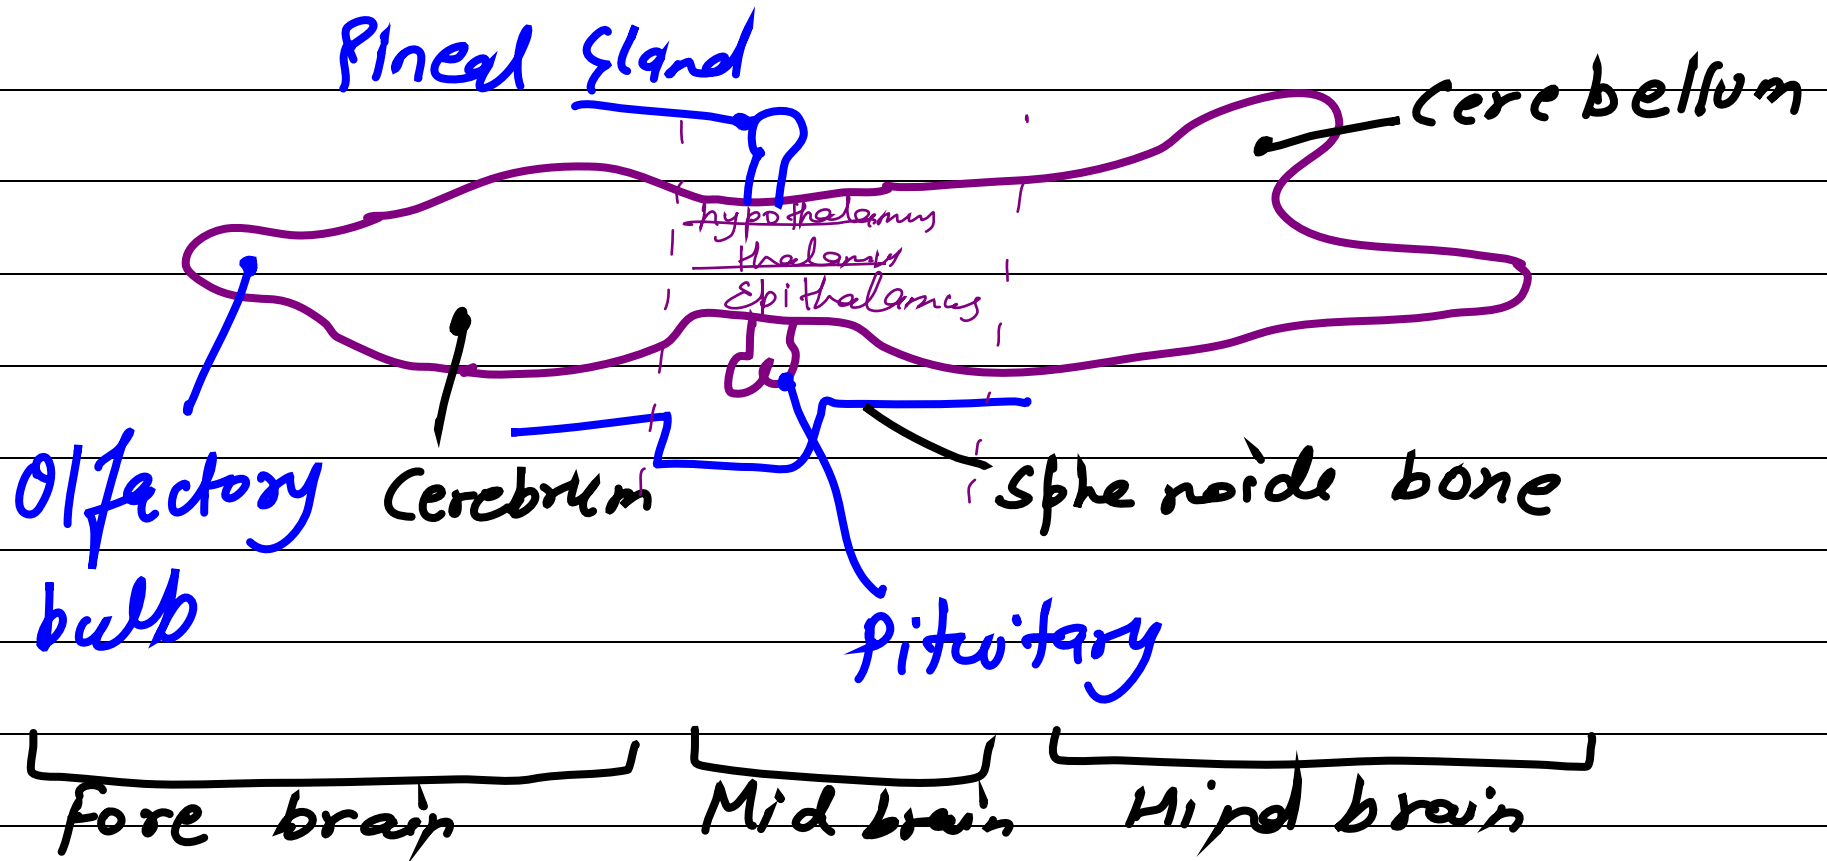 Pineal Gland
Cerebellum
hypothalamus
thalamus
Epithalamus
Olfactory
bulb
Cerebrum
Sphenoide bone
Pituitary
Fore brain
Mid brain
Hind brain